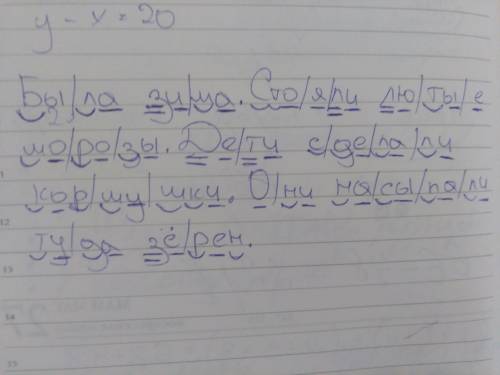 y - x = 20
Бы/ла зи/ма. Сто/я/ли лю/ты/е
мо/ро/зы. Де/ти сде/ла/ли
кор/му/шки. О/ни на/сы/па/ли
ту/да зё/рен.